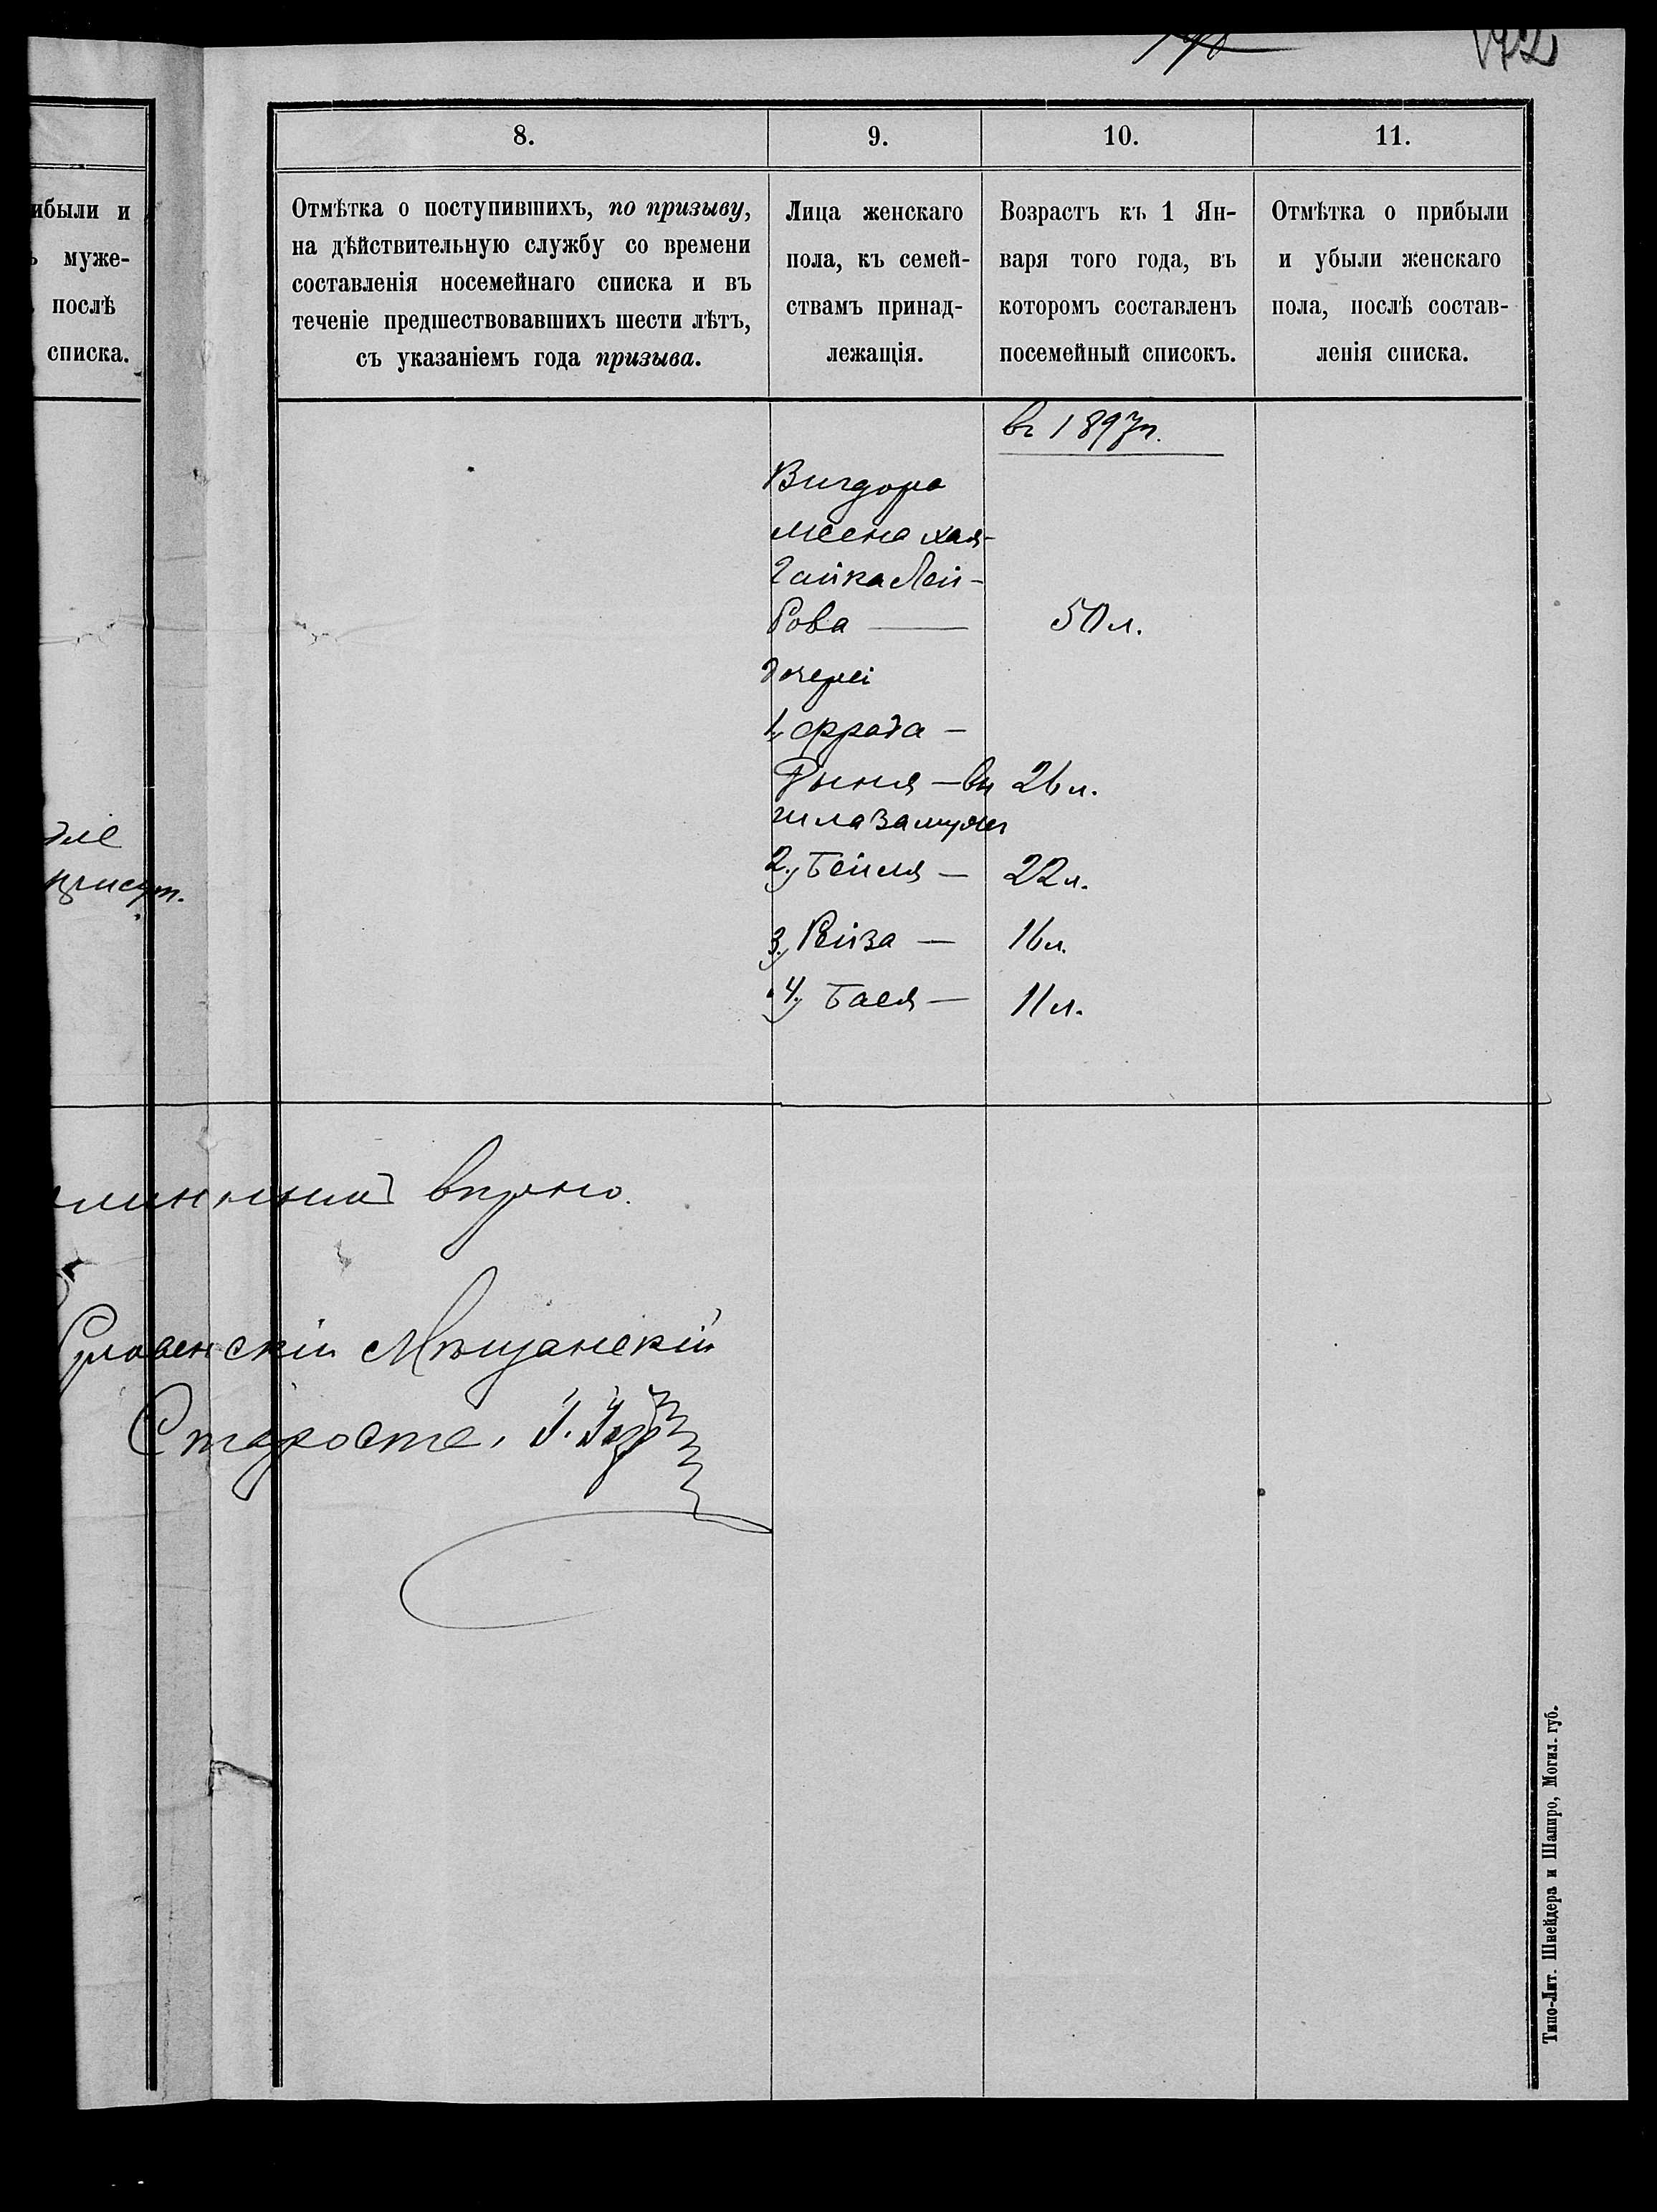 172
ибыли и
муже-
послѣ
списка.
8.
9.
10.
11.
Отмѣтка о поступившихъ, по призыву,
на дѣйствительную службу со времени
составленія посемейнаго списка и въ
теченіе предшествовавшихъ шести лѣтъ,
съ указаніемъ года призыва.
Лица женскаго
пола, къ семей-
ствамъ принад-
лежащія.
Возрастъ къ 1 Ян-
варя того года, въ
которомъ составленъ
посемейный списокъ.
Отмѣтка о прибыли
и убыли женскаго
пола, послѣ состав-
ленія списка.
въ 1897 г.
Вигдора
жена Хая-
Гайка Лей-
бова — 50 л.
дочери
1, Фрада-
Рыня — вы 26 л.
шла замужъ
2, Бейля — 22 л.
3, Рейза — 16 л.
4, Бася — 11 л.
линнымъ вѣрно.
Мѣщанскій
Староста,
Типо-Лит. Шнейдера и Шапиро, Могил. губ.